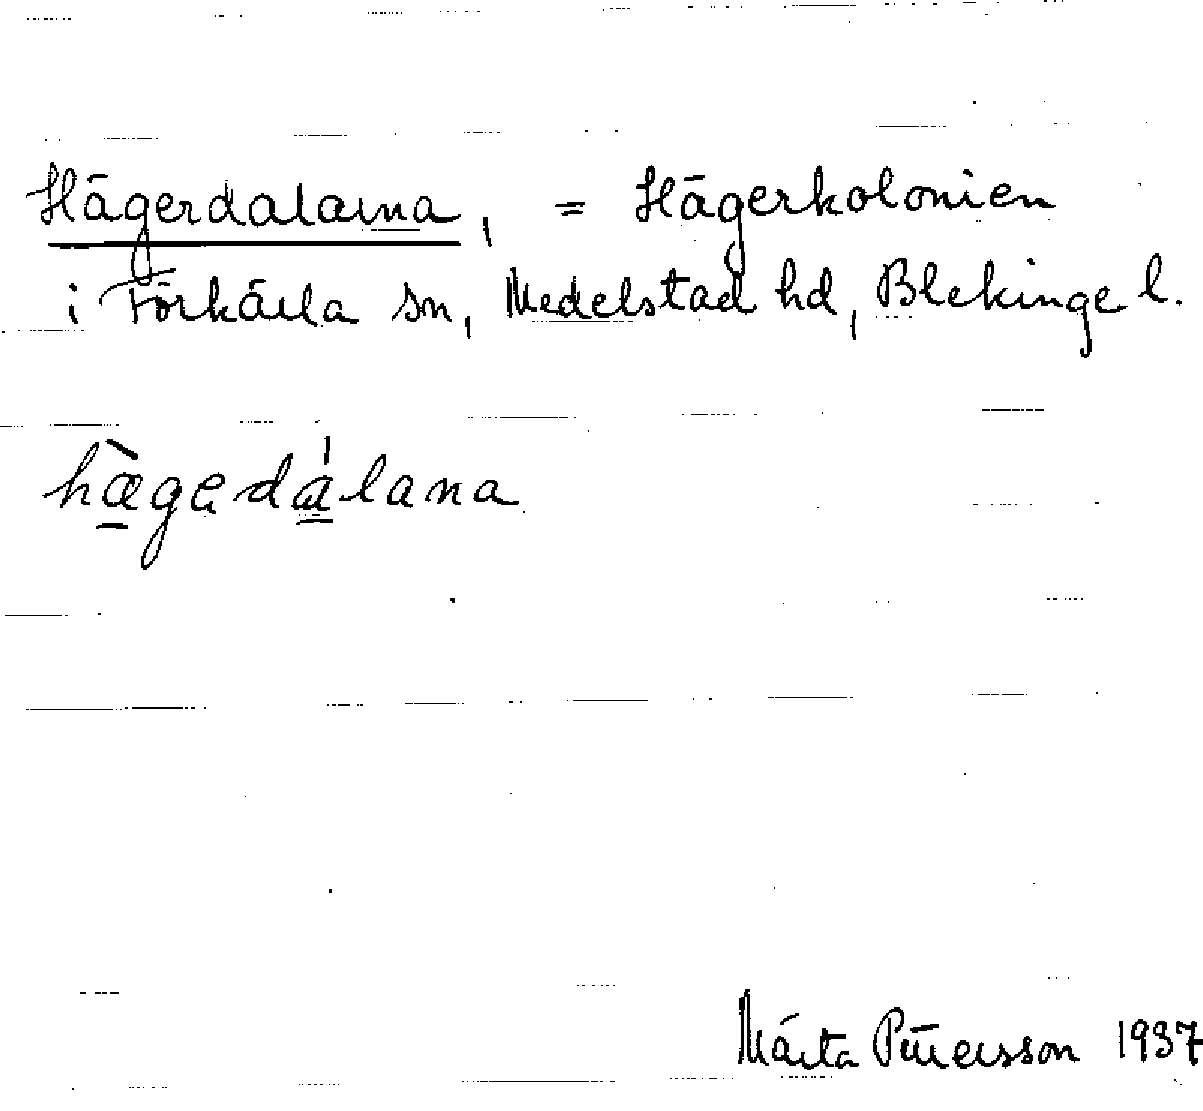 Hägerdalarna, = Hägerkolonien
i Förkärla sn, Medelstad hd, Blekinge l.
hæ̀gedálana
Märta Pettersson 1937